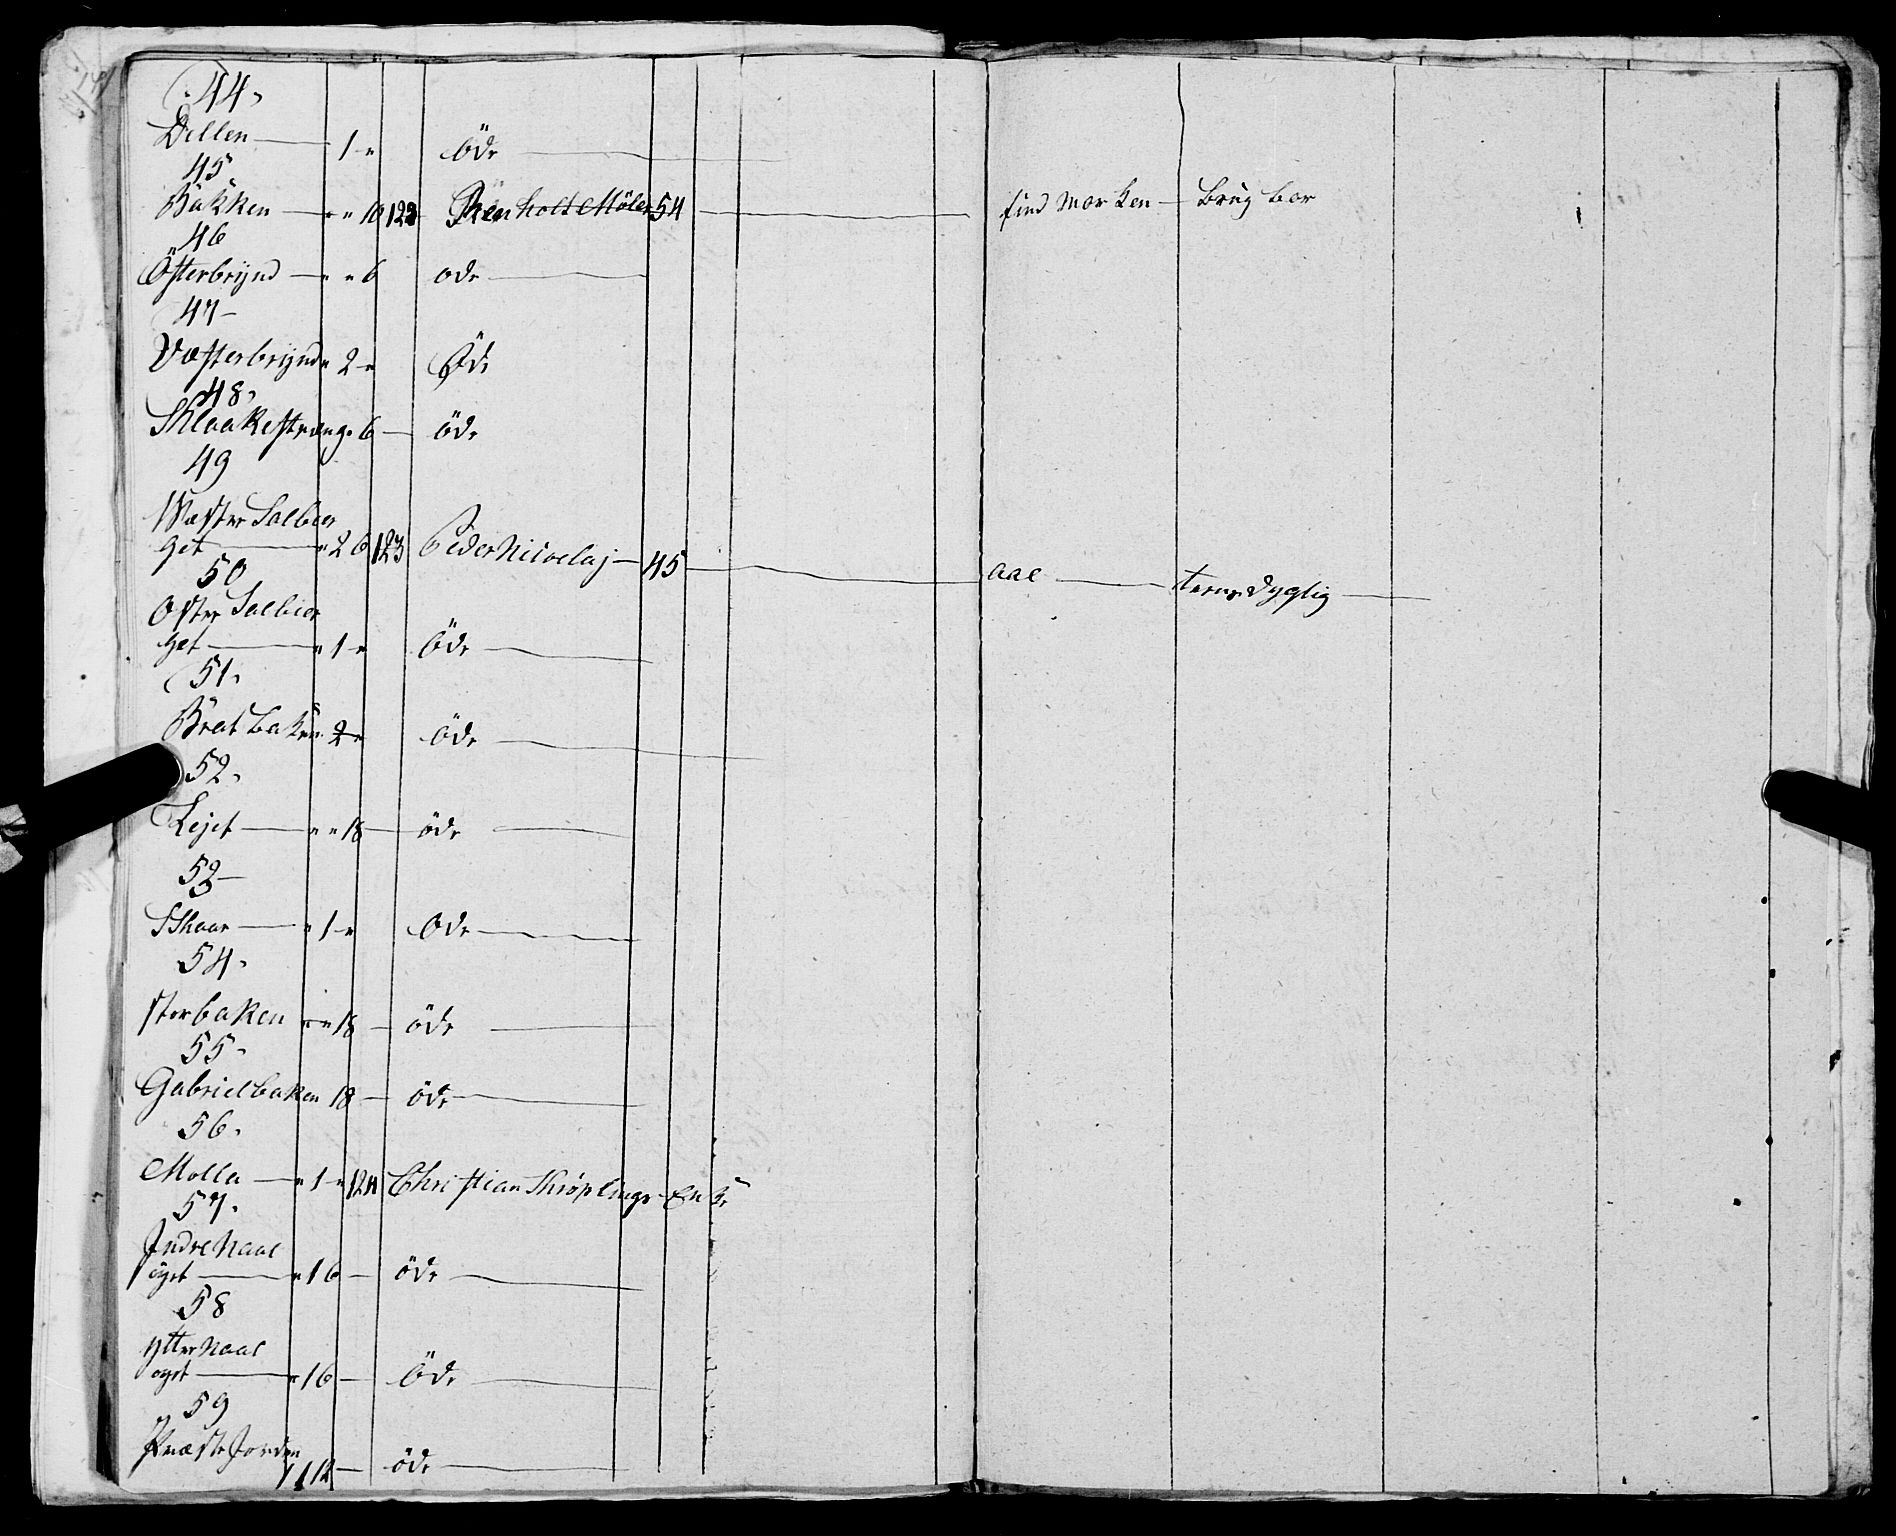 44,
Dellen — 1 "
öde
45
Bakken — " " 16 123 Renholt Möler 54 — findmarken — brug bar
46
Österbrynd — " " 6 öde
47 —
Væsterbrynd " 2 " Öde
48,
Sklaakestræng " 6 — öde
49
Wæster Salbier
get — " 2 6 123 Peder Nicolaj — 45 — aae — tienesdygtig —
50
Oster Salbier
get — " 1 " öde —
51,
Bratbaken 2 " öde —
52,
Lejet — " " 18 — öde —
53 —
Skaar — " 1 " Öde —
54,
storbaken " " 18 — öde —
55,
Gabrielbaken 18 — öde —
56,
Molla — " 1 " 124 Christian Skröplings Enke
57,
Indre Naal
öyet — " 1 6 — öde —
58
ytter Naal
oyet — " 1 6 — öde —
59
Præste Jorden
1 12 — öde —